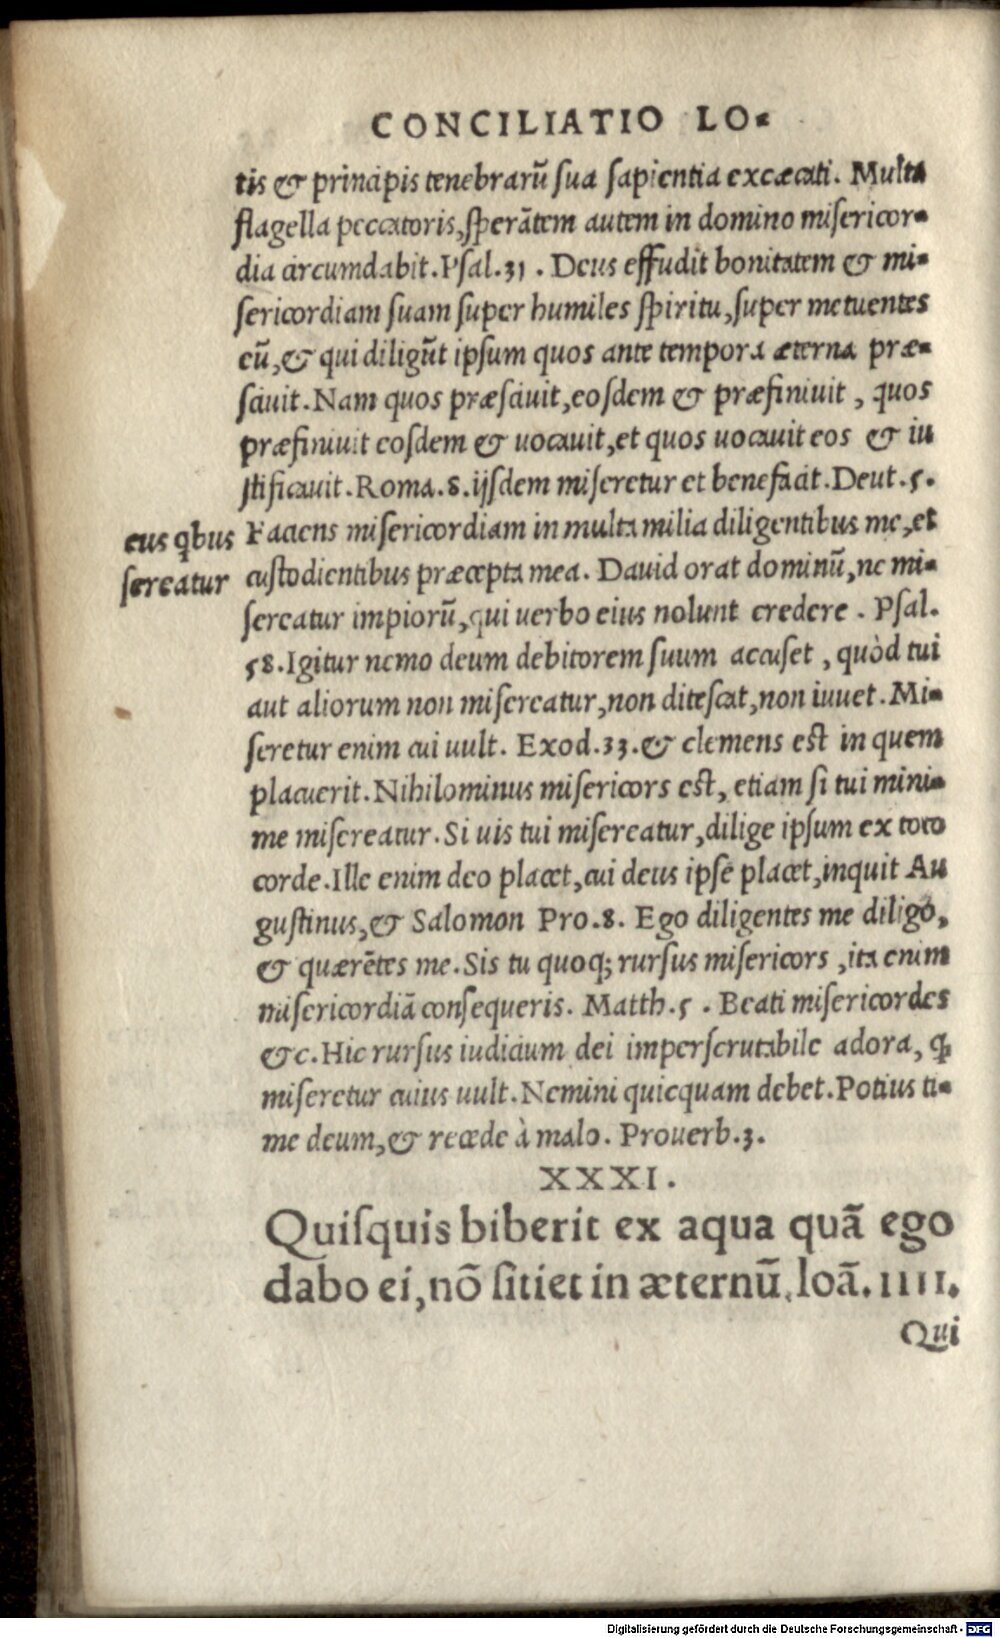 CONCILIATIO LO-
tis & principis tenebrarū sua sapientia excæcati. Multa
flagella peccatoris, sperātem autem in domino misericor-
dia circumdabit. Psal. 31. Deus effudit bonitatem & mi-
sericordiam suam super humiles spiritu, super metuentes
eū, & qui diligūt ipsum quos ante tempora æterna præ-
scivit. Nam quos præscivit, eosdem & præfinivit, quos
præfinivit eosdem & vocavit, et quos vocavit eos & iu
stificavit. Roma. 8. ijsdem miseretur et benefacit. Deut. 5.
eus qbus
sereatur
Faciens misericordiam in multa milia diligentibus me, et
custodientibus præcepta mea. David orat dominū, ne mi-
sereatur impiorū, qui verbo eius nolunt credere. Psal.
58. Igitur nemo deum debitorem suum accuset, quòd tui
aut aliorum non misereatur, non ditescat, non iuvet. Mi-
seretur enim cui vult. Exod. 33. & clemens est in quem
placuerit. Nihilominus misericors est, etiam si tui mini-
me misereatur. Si vis tui misereatur, dilige ipsum ex toto
corde. Ille enim deo placet, cui deus ipse placet, inquit Au
gustinus, & Salomon Pro. 8. Ego diligentes me diligo,
& quærētes me. Sis tu quoq; rursus misericors, ita enim
misericordiā consequeris. Matth. 5. Beati misericordes
&c. Hic rursus iudicium dei imperscrutabile adora, ꝙ
miseretur cuius vult. Nemini quicquam debet. Potius ti-
me deum, & recede à malo. Proverb. 3.
XXXI.
Quisquis biberit ex aqua quā ego
dabo ei, nō sitiet in æternū. Ioā. IIII.
Qui
Digitalisierung gefördert durch die Deutsche Forschungsgemeinschaft - DFG